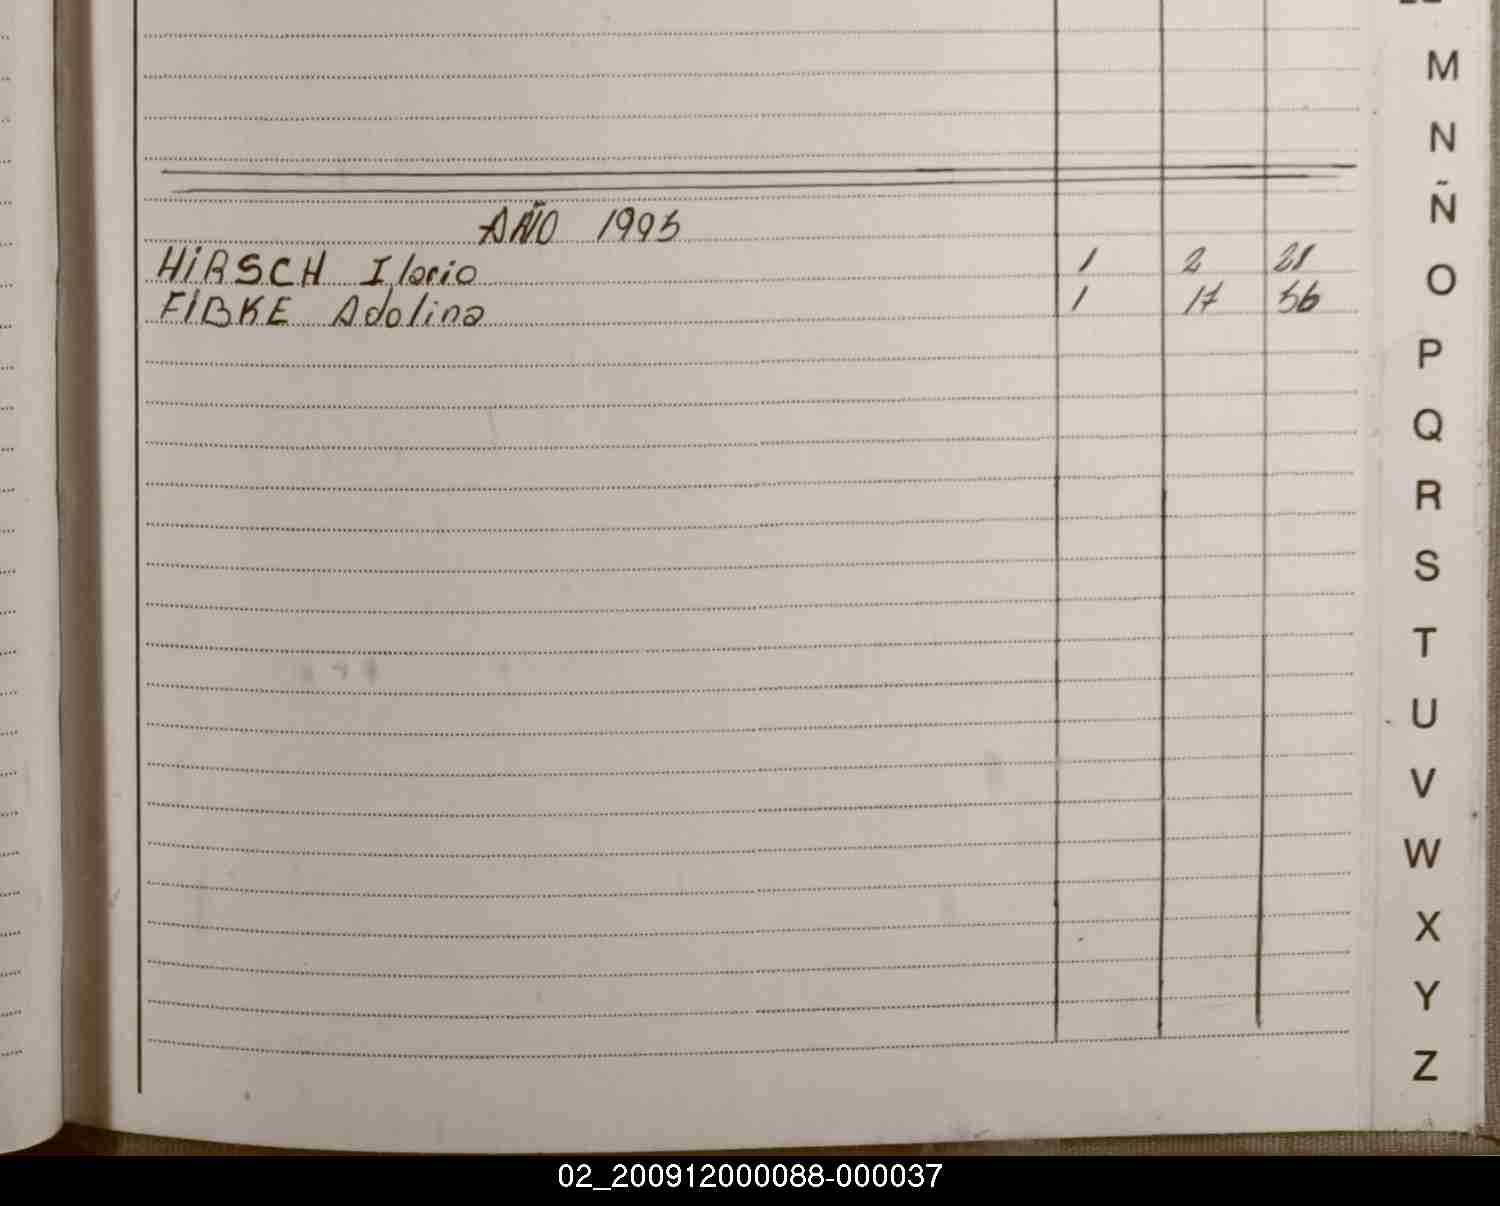 M
N
Ñ
AÑO 1995
HiRSCH Ilario 1 2 28
O
FIBKE Adolina 1 17 56
P
Q
R
S
T
U
V
W
X
Y
Z
02_200912000088-000037